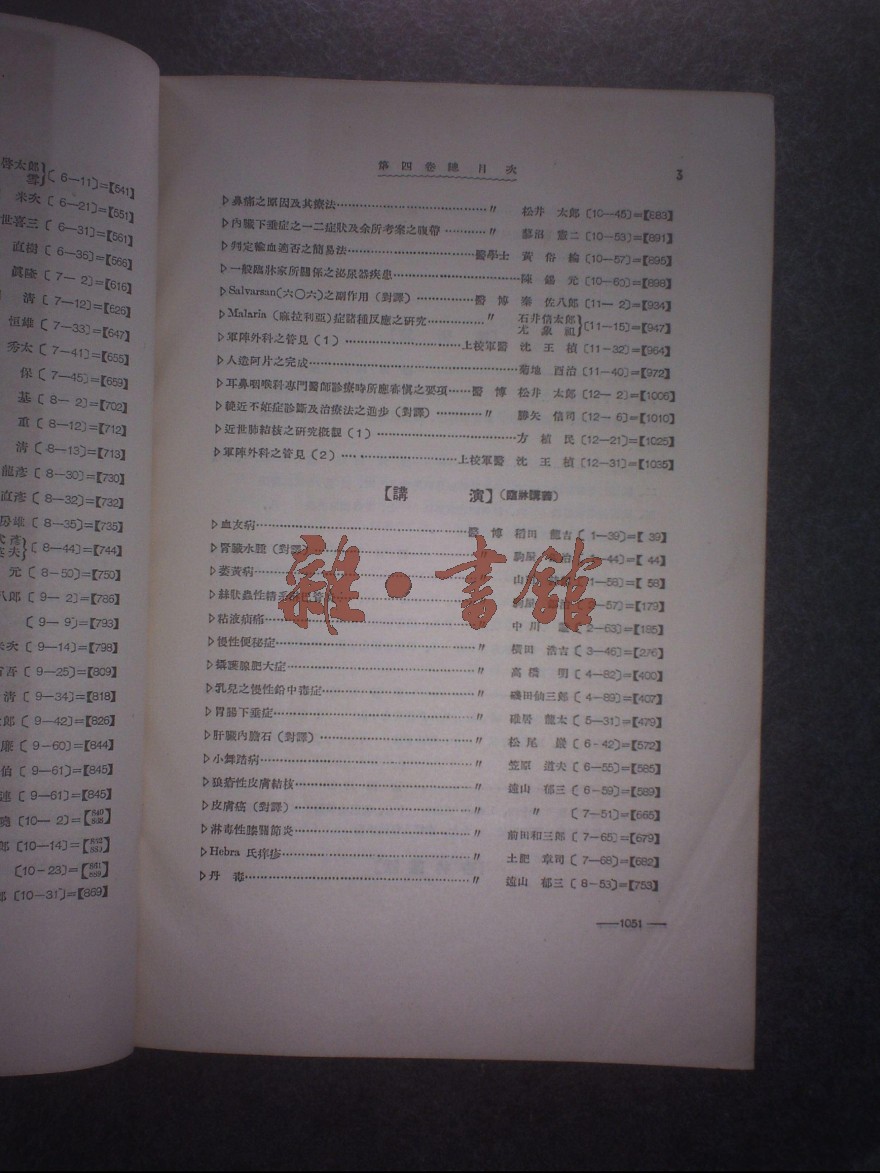 啓太郎
雪〔 6—11〕=【541】
米次〔 6—21〕=【551】
世喜三〔 6—31〕=【561】
直樹〔 6—36〕=【566】
眞隆〔 7— 2〕=【616】
清〔 7—12〕=【626】
恒雄〔 7—33〕=【647】
秀太〔 7—41〕=【655】
保〔 7—45〕=【659】
基〔 8— 2〕=【702】
重〔 8—12〕=【712】
清〔 8—13〕=【713】
龍彥〔 8—30〕=【730】
直彥〔 8—32〕=【732】
雄〔 8—35〕=【735】
〔 8—44〕=【744】
元〔 8—50〕=【750】
八郎〔 9— 2〕=【786】
〔 9— 9〕=【793】
次〔 9—14〕=【798】
吾〔 9—25〕=【809】
清〔 9—34〕=【818】
郎〔 9—42〕=【826】
廉〔 9—60〕=【844】
伯〔 9—61〕=【845】
〔 9—61〕=【845】
〔10— 2〕=
郎〔10—14〕=
〔10—23〕=
郎〔10—31〕=【869】
第四卷總目次 3
▷鼻痛之原因及其療法……〃 松井 太郎〔10—45〕=【883】
▷內臟下垂症之一二症狀及余所考案之腹帶……〃 憲二〔10—53〕=【891】
▷判定輸血適否之簡易法……醫學士 黃 俗綸〔10—57〕=【895】
▷一般臨牀家所關係之泌尿器疾患……陳 錫 光〔10—60〕=【898】
▷Salvarsan(六〇六)之副作用(對譯)……醫博 秦 佐八郎〔11— 2〕=【934】
▷Malaria(麻拉利亞)症諸種反應之硏究……〃 石井信太郎 尤 象 組〔11—15〕=【947】
▷軍陣外科之管見(1)……上校軍醫 沈 王楨〔11—32〕=【964】
▷人造阿片之完成……菊地 酉治〔11—40〕=【972】
▷耳鼻咽喉科專門醫師診療時所應審愼之要項……醫博 松井 太郎〔12— 2〕=【1006】
▷輓近不姙症診斷及治療法之進步(對譯)……〃 勝矢 信司〔12— 6〕=【1010】
▷近世肺結核之硏究槪觀(1)……方 植 民〔12—21〕=【1025】
▷軍陣外科之管見(2)……上校軍醫 沈 王楨〔12—31〕=【1035】
【講 演】(臨牀講義)
▷血友病……醫博 稻田 龍吉〔 1—39〕=【 39】
▷腎臟水腫(對譯)……〃 駒屋 治〔 1—44〕=【 44】
▷萎黃病……〃 山〔 1—58〕=【 58】
▷絲狀蟲性〔 2—57〕=【179】
▷粘液疝痛……中川〔 2—63〕=【185】
▷慢性便秘症……〃 橫田 浩吉〔 3—46〕=【276】
▷攝護腺肥大症……〃 高橋 明〔 4—82〕=【400】
▷乳兒之慢性鉛中毒症……〃 磯田仙三郎〔 4—89〕=【407】
▷胃腸下垂症……〃 龍太〔 5—31〕=【479】
▷肝臟內膽石(對譯)……〃 松尾 巖〔 6—42〕=【572】
▷小舞踏病……〃 笠原 道夫〔 6—55〕=【585】
▷狼瘡性皮膚結核……〃 遠山 郁三〔 6—59〕=【589】
▷皮膚癌(對譯)……〃 〃〔 7—51〕=【665】
▷淋毒性膝關節炎……〃 前田和三郎〔 7—65〕=【679】
▷Hebra 氏痒疹……〃 土肥 章司〔 7—68〕=【682】
▷丹 毒……〃 遠山 郁三〔 8—53〕=【753】
—1051—
雜·書館